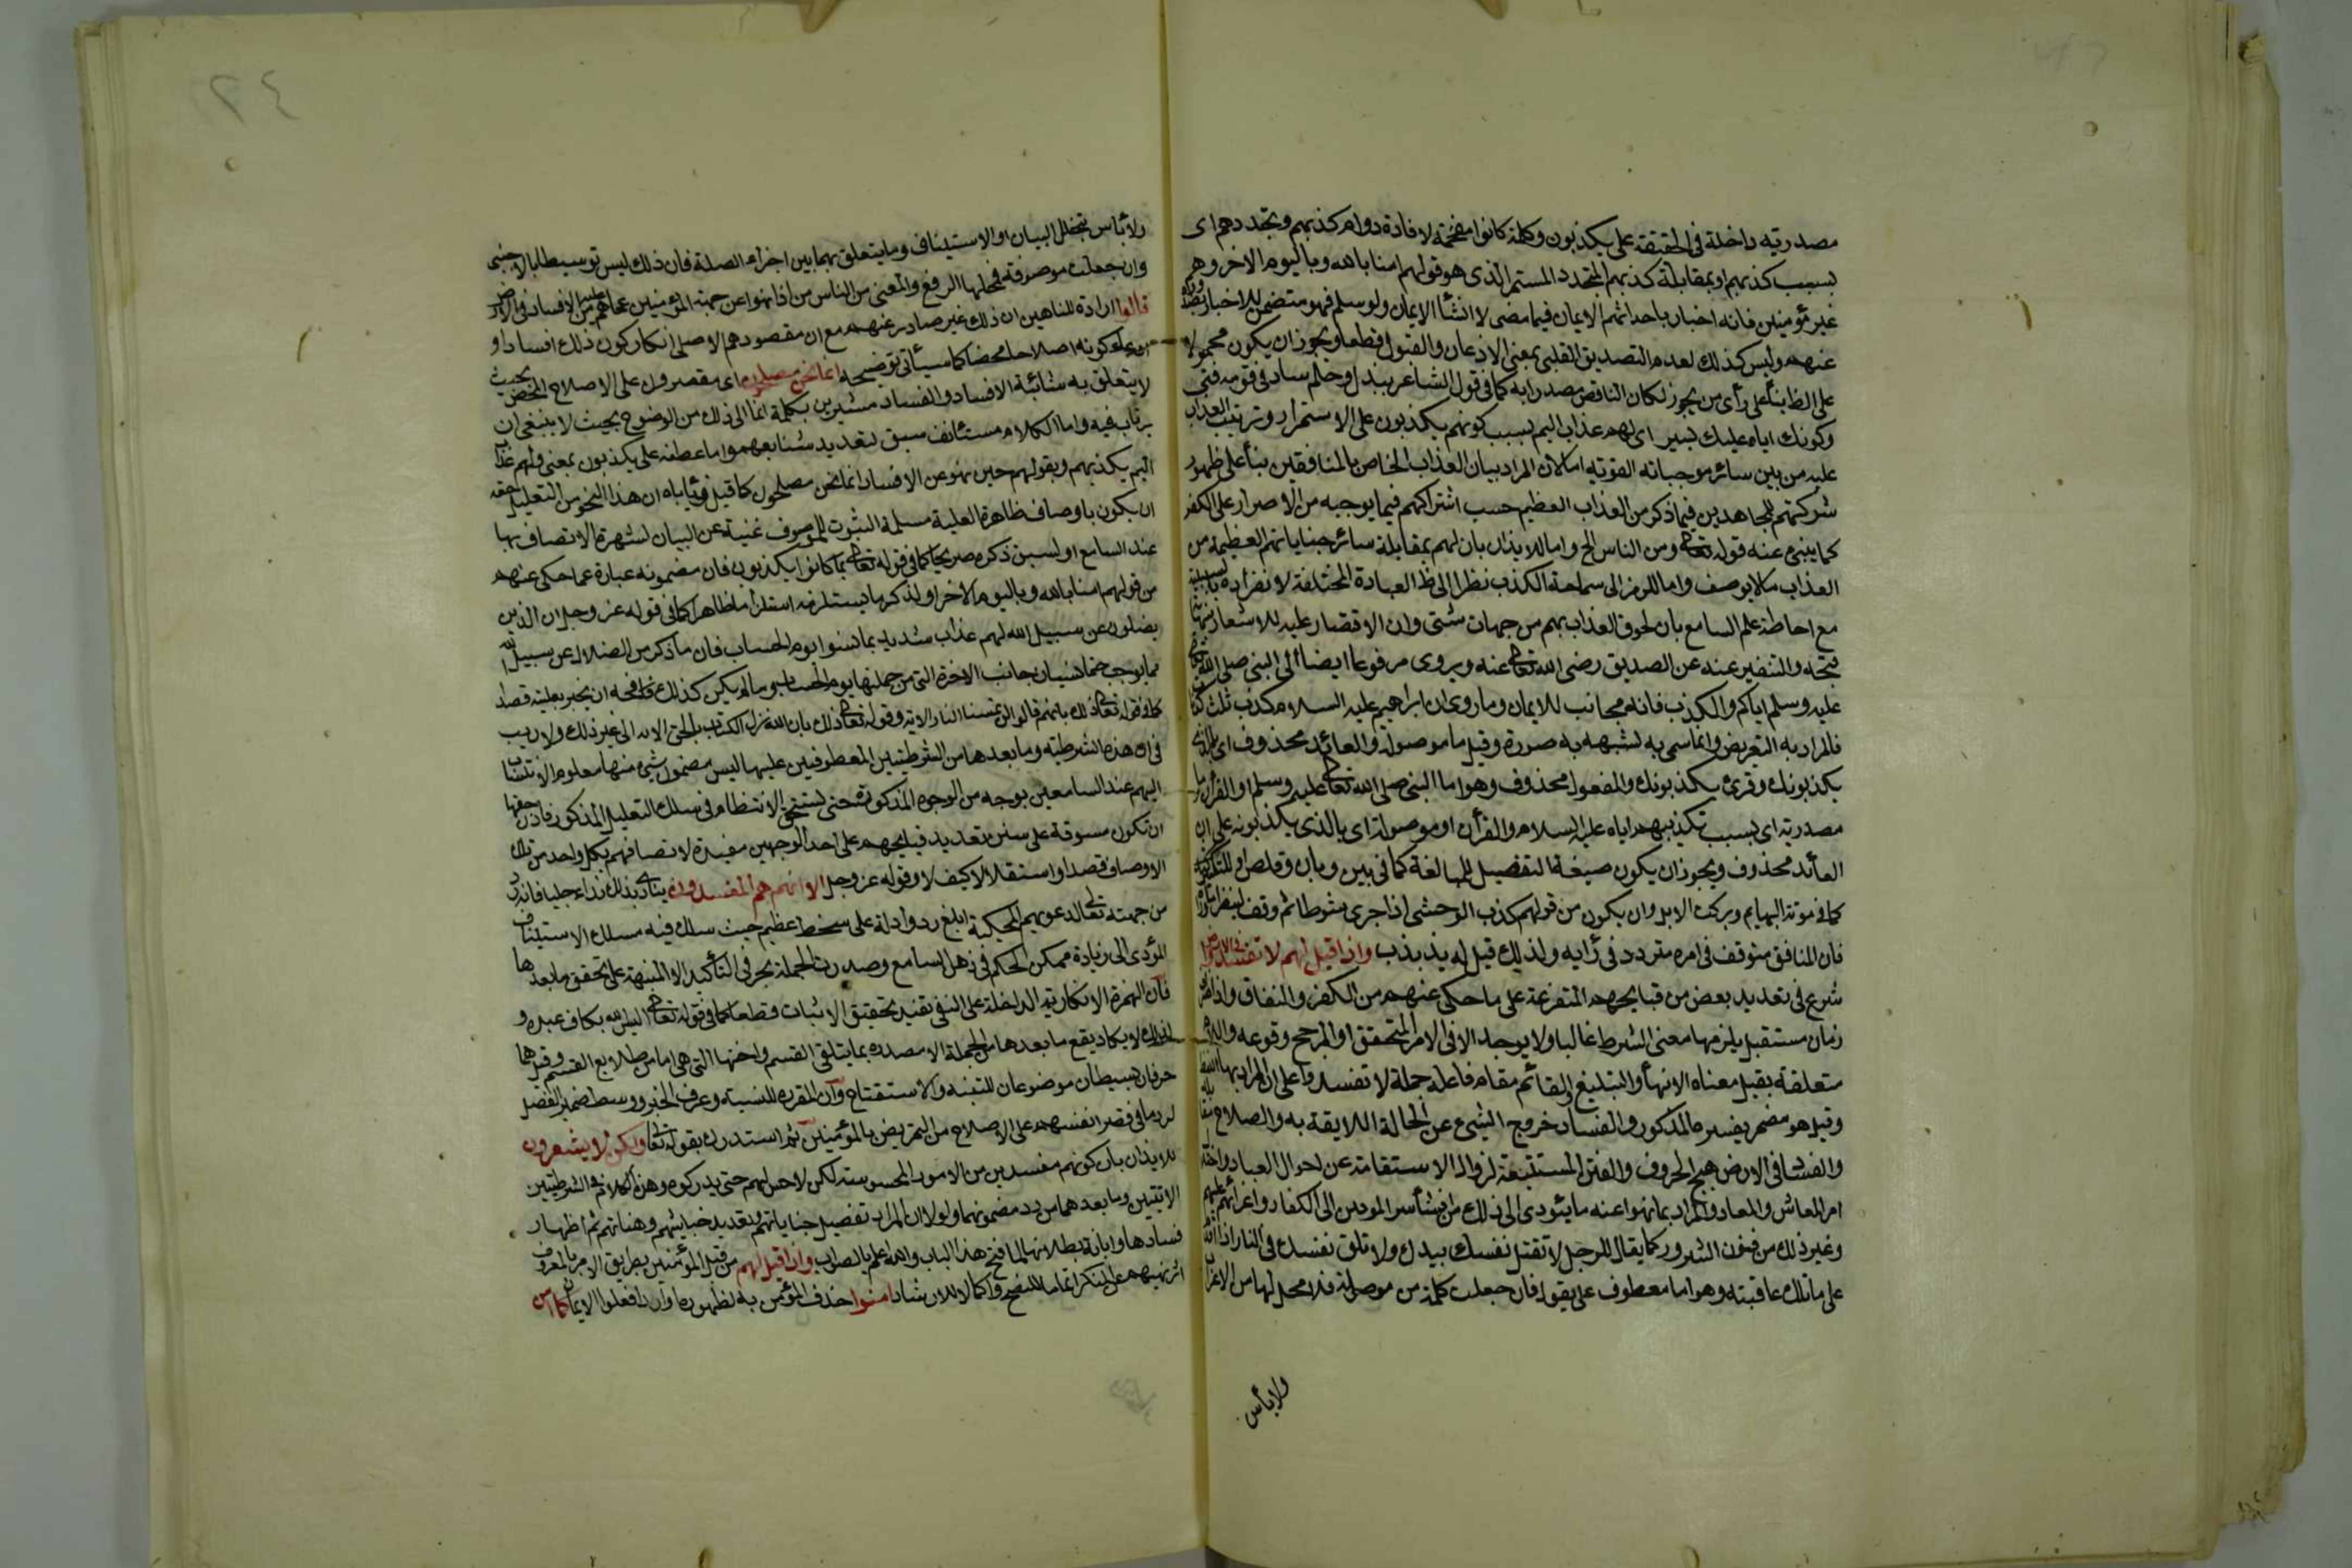 مصدرية داخلة في الحقيقة على يكذبون وكلمة كانوا مقحمة لافادة دوام كذبهم وتجدده اى
بسبب كذبهم او بمقابلة كذبهم المتجدد المستمر الذى هو قولهم امنا بالله وباليوم الاخر وهم
غير مؤمنين فانه اخبار باحداثهم الايمان فيما مضى لا انشأ الايمان ولو سلم فهو متضمن للاخبار بصدوره
عنهم وليس كذلك لعدم التصديق القلبى بمعنى الاذعان والقبول قطعا ويجوز ان يكون محمولا
على الظ بنأ على رأى من يجوز لكان الناقص مصدرا به كما في قول الشاعر ببذل وحلم ساد في قومه فتى
وكونك اياه عليك يسير اى لهم عذاب اليم بسبب كونهم يكذبون على الاستمرار وترتيب العذاب
عليه من بين سائر موجباته القوية اما لان المراد بيان العذاب الخاص بالمنافقين بنأ على ظهور
شركتهم للمجاهدين فيما ذكر من العذاب العظيم حسب اشتراكهم فيما يوجبه من الاصرار على الكفر
كما ينبئ عنه قوله تعالى ومن الناس الخ واما للايذان بان لهم بمقابلة سائر جناياتهم العظيمة من
العذاب مالا يوصف واما للرمز الى سماجة الكذب نظرا الى ظ العبارة المختلفة لانفراده بالسببية
مع احاطة علم السامع بان لحوق العذاب بهم من جهات شتى وان الاقتصار عليه للاشعار بنهاية
قبحه والتنفير عنه عن الصديق رضى الله تعالى عنه ويروى مرفوعا ايضا الى النبى صلى الله تعالى
عليه وسلم اياكم والكذب فانه مجانب للايمان وما روى ان ابراهيم عليه السلام كذب ثلث كذبات
فالمراد به التعريض وانما سمى به لشبهه به صورة وقيل ما موصولة والعائد محذوف اى بالذى
يكذبونك وقرئ يكذبونك والمفعول محذوف وهو اما النبى صلى الله تعالى عليه وسلم او القرآن وما
مصدرية اى بسبب تكذيبهم اياه عليه السلام والقرأن او موصولة اى بالذى يكذبونه على ان
العائد محذوف ويجوز ان يكون صيغة التفضيل للمبالغة كما في بين وبان وقلص او للتكثير
كما في موتة البهايم وبركت الابل وان يكون من قولهم كذب الوحشى اذا جرى شوطا ثم وقف لينظر ما وراه
فان المنافق متوقف في امره متردد في رأيه ولذلك قيل له يذبذب واذا قيل لهم لا تفسدوا في الارض
شرع في تعديد بعض من قبايحهم المتفرعة على ما حكى عنهم من الكفر والنفاق واذا ظرف
زمان مستقبل يلزمها معنى الشرط غالبا ولا يوجد الا في الامر المتحقق او المرجح وقوعه واللام
متعلقة بقيل معناه الانهأ والتبليغ والقائم مقام فاعله جملة لا تفسدوا على ان المراد بها اللفظ
وقيل هو مضمر يفسره المذكور والفساد خروج الشئ عن الحالة اللايقة به والصلاح مقابله
والفسا في الارض هيج الحروف والفتن المستتبعة لزوال الاستقامة عن احوال العباد واختلال
امر المعاش والمعاد والمراد بما نهوا عنه ما يئودى الى ذلك من افشأ سر المومين الى الكفار واغرائهم عليهم
وغير ذلك من فنون الشرور كما يقال للرجل لا تقتل نفسك بيدك ولا تلق نفسك في النار اذا اقدم
على ما تلك عاقبته وهو اما معطوف على يقول فان جعلت كلمة من موصولة فلا محل لها من الاعراب
ولا بأس
٢٤
ولا بأس بتخلل البيان او الاستيناف وما يتعلق بهما بين اجزاء الصلة فان ذلك ليس توسيطا بالاجنبى
وان جعلت موصوفة فمحلها الرفع والمعنى من الناس من اذا نهوا عن جهة المؤمنين عما هم عليه من الافساد في الارض
قالوا ارادة للناهين ان ذلك غير صادر عنهم مع ان مقصودهم الاصلى انكار كون ذلك افسادا و
ادعاء كونه اصلاحا محضا كما سيأتى توضيحه انما نحن مصلحون اى مقصرون على الاصلاح المحض بحيث
لا يتعلق به شائبة الافساد والفساد مشيرين بكلمة انما الى ذلك من الوضوح بحيث لا ينبغى ان
يرتاب فيه واما الكلام مستئانف سبق لتعديد شنايعهم واما عطف على يكذبون بمعنى ولهم عذاب
اليم بكذبهم وبقولهم حين نهو عن الافساد انما نحن مصلحون كما قيل فيأباه ان هذا النحو من التعليل حقه
ان يكون باوصاف ظاهرة العلية مسلمة الثبوت للموصوف غنية عن البيان لشهرة الاتصاف بها
عند السامع او لسبق ذكره صريحا كما في قوله تعالى بما كانوا يكذبون فان مضمونه عبارة عما حكى عنهم
من قولهم امنا بالله وباليوم الاخر او لذكر ما يستلزمه استلزأما ظاهرا كما في قوله عز وجل ان الذين
يضلون عن سبيل الله لهم عذاب شديد بما نسوا يوم الحساب فان ما ذكر من الضلال عن سبيل الله
مما يوجب حتما نسيان جانب الاخرة التى من جملتها يوم الحساب وما لم يكن كذلك فحقه ان يخبر بعليته قصدا
كما في قوله تعالى ذلك بانهم قالوا لن تمسنا النار الاية وقوله تعالى ذلك بان الله نزل الكتاب بالحق الايه الى غير ذلك ولا ريب
في ان هذه الشرطية وما بعدها من الشرطيتين المعطوفتين عليها ليس مضمون شئ منها معلوم الانتساب
اليهم عند السامعين بوجه من الوجوه المذكورة حتى تستحق الانتظام في سلك التعليل المذكور فاذن حقها
ان تكون مسوقة على سنن تعديد قبايحهم على احد الوجهين مفيدة لاتصافهم بكل واحد من تلك
الاوصاف قصدا واستقلالا كيف لا وقوله عز وجل الا انهم هم المفسدون ينادى بذلك نداء جليا فانه رد
من جهته تعالى لدعويهم المحكية ابلغ رد وادلة على سخط عظيم حيث سلك فيه مسلك الاستيناف
المؤدى الى زيادة تمكن الحكم في ذهن السامع وصدرت الجملة بحرفى التأكيد الا المنبهة على تحقق ما بعدها
فان الهمزة الانكارية الداخلة على النفى تفيد تحقيق الاثبات قطعا كما في قوله تعالى اليس الله بكاف عبده و
لذلك لا يكاد يقع ما بعدها من الجملة الا مصدره بما يتلقى القسم واختها التى هى اما من طلايع القسم وقيل هما
حرفان بسيطان موضوعان للتنبيه والاستفتاح وان المقرره للنسبة وعرف الخبر ووسط ضمير الفصل
لرد ما في قصر انفسهم على الاصلاح من التعريض بالمؤمنين ثم استدرك بقوله تعالى ولكن لا يشعرون
للايذان بان كونهم مفسدين من الامور المحسوسة لكن لا حس لهم حتى يدركوه وهذا الكلام في الشرطيتين
الاتيتين وما بعدهما من رد مضمونهما ولولا ان المراد تفصيل جناياتهم وتعديد خبايثهم وهناتهم ثم اظهار
فسادها وابانة بطلانها لما فتح هذا الباب والله اعلم بالصواب واذا قيل لهم من قبل المؤمنين بطريق الامر بالمعروف
اثر نهيهم عن المنكر اتماما للنصح واكمالا للارشاد امنوا حذف المؤمن به لظهوره او اريد افعلوا الايمان كما امن